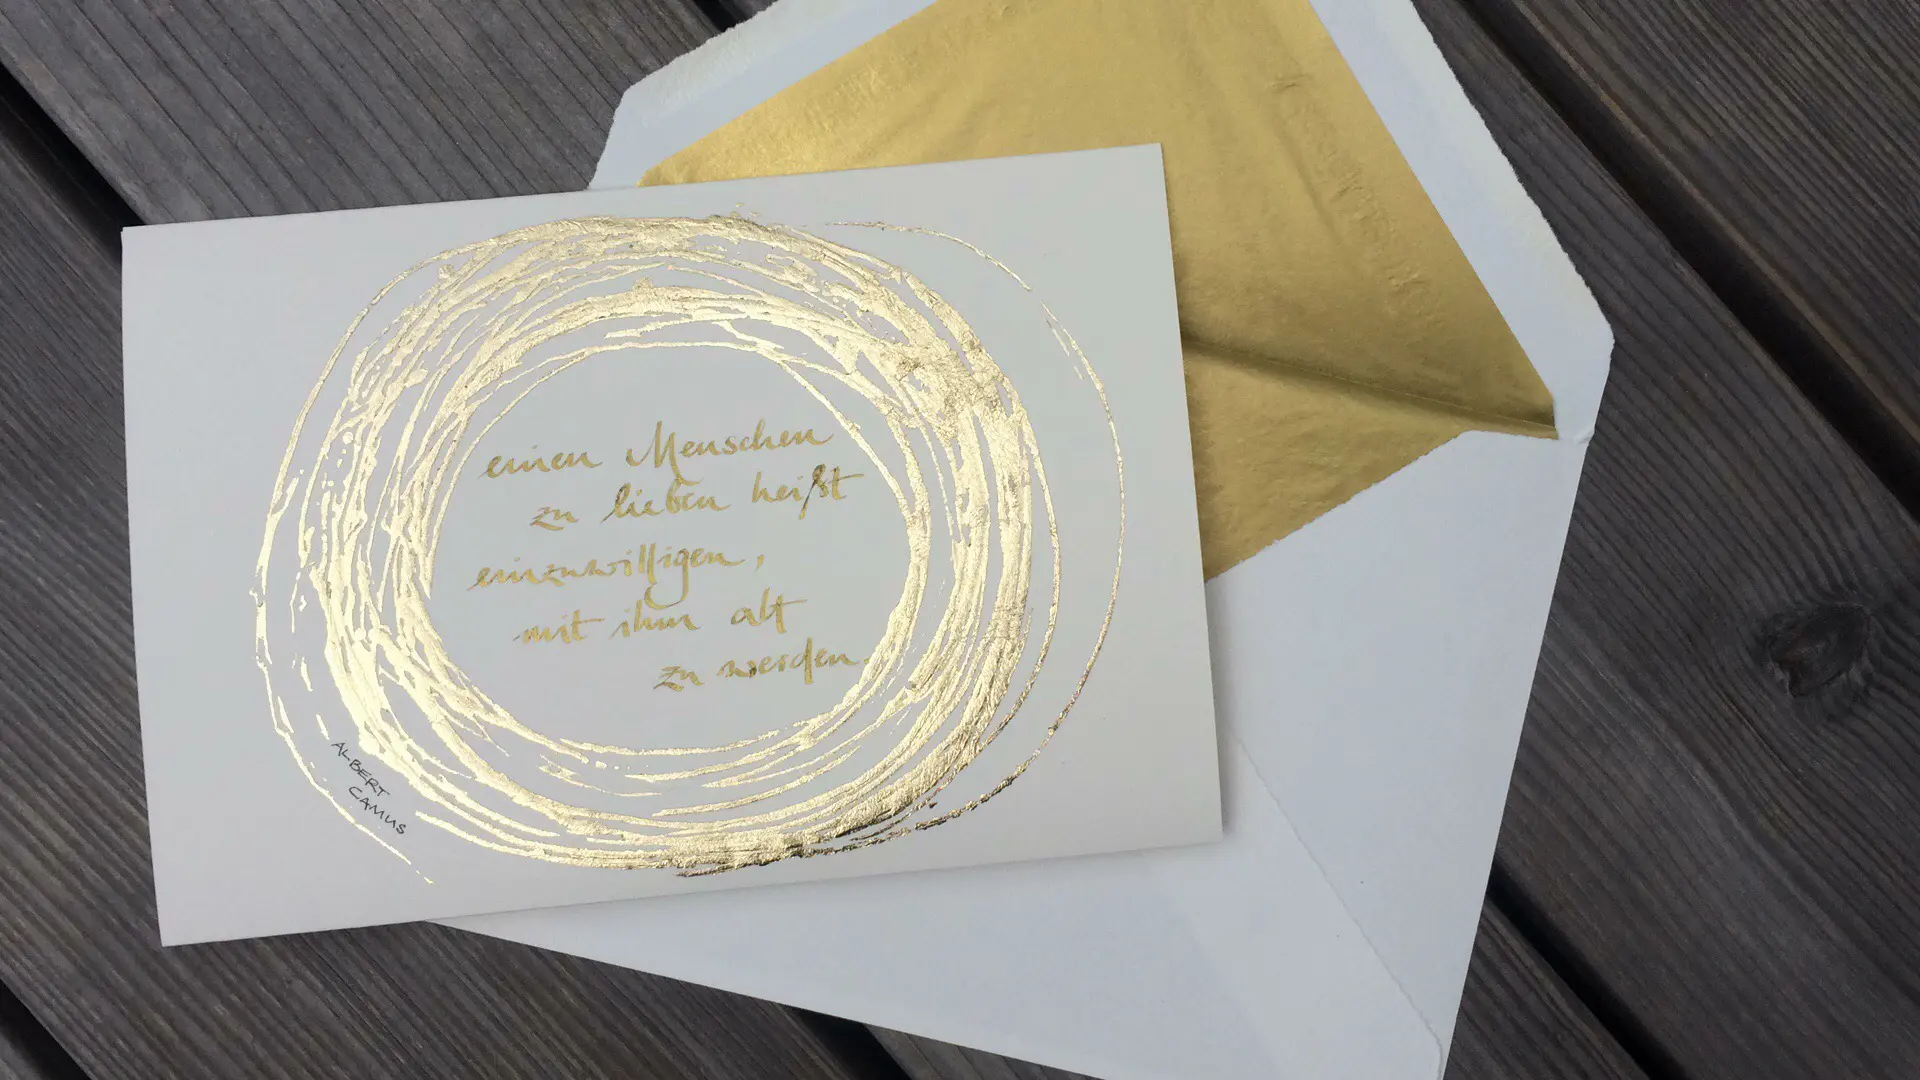 einen Menschen
zu lieben heißt
einzuwilligen,
mit ihm alt
zu werden.
ALBERT
CAMUS